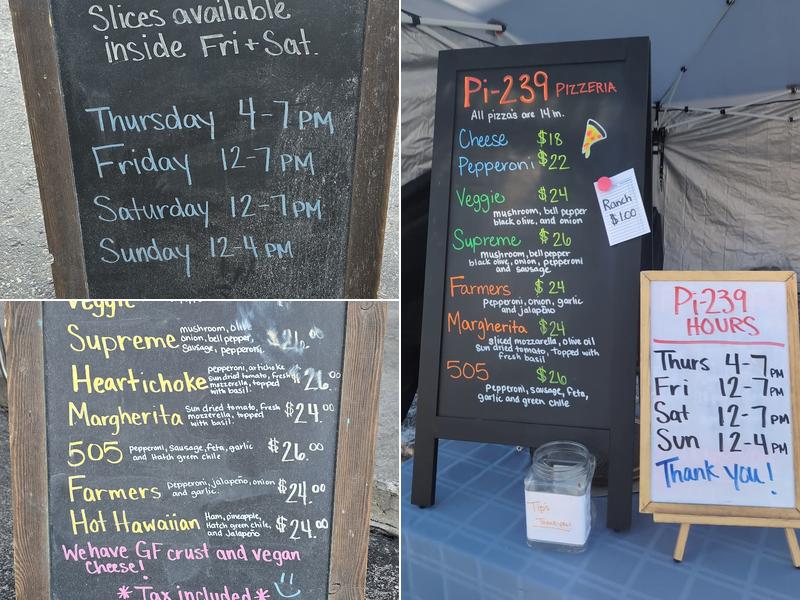 Slices available
inside Fri + Sat.
Thursday 4-7 PM
Friday 12-7 PM
Saturday 12-7 PM
Sunday 12-4 PM
Veggie
Supreme mushroom, olive
onion, bell pepper,
sausage, pepperoni. $26.00
Heartichoke pepperoni, artichoke
sun dried tomato, fresh
mozzerella, topped
with basil. $26.00
Margherita sun dried tomato, fresh
mozzerella, topped
with basil. $24.00
505 pepperoni, sausage, feta, garlic
and Hatch green chile $26.00
Farmers pepperoni, jalapeño, onion
and garlic. $24.00
Hot Hawaiian Ham, pineapple,
Hatch green chile,
and Jalapeño $24.00
We have GF crust and vegan
cheese!
*Tax included*
Pi-239 PIZZERIA
All pizza's are 14 in.
Cheese $18
Pepperoni $22
Veggie $24
mushroom, bell pepper
black olive, and onion
Supreme $26
mushroom, bell pepper
black olive, onion, pepperoni
and sausage
Farmers $24
pepperoni, onion, garlic
and jalapeño
Margherita $24
sliced mozzarella, olive oil
sun dried tomato, topped with
fresh basil
505 $26
Pepperoni, sausage, feta,
garlic and green chile
Ranch
$1.00
Tips
Thank you!
Pi-239
HOURS
Thurs 4-7 PM
Fri 12-7 PM
Sat 12-7 PM
Sun 12-4 PM
Thank you!